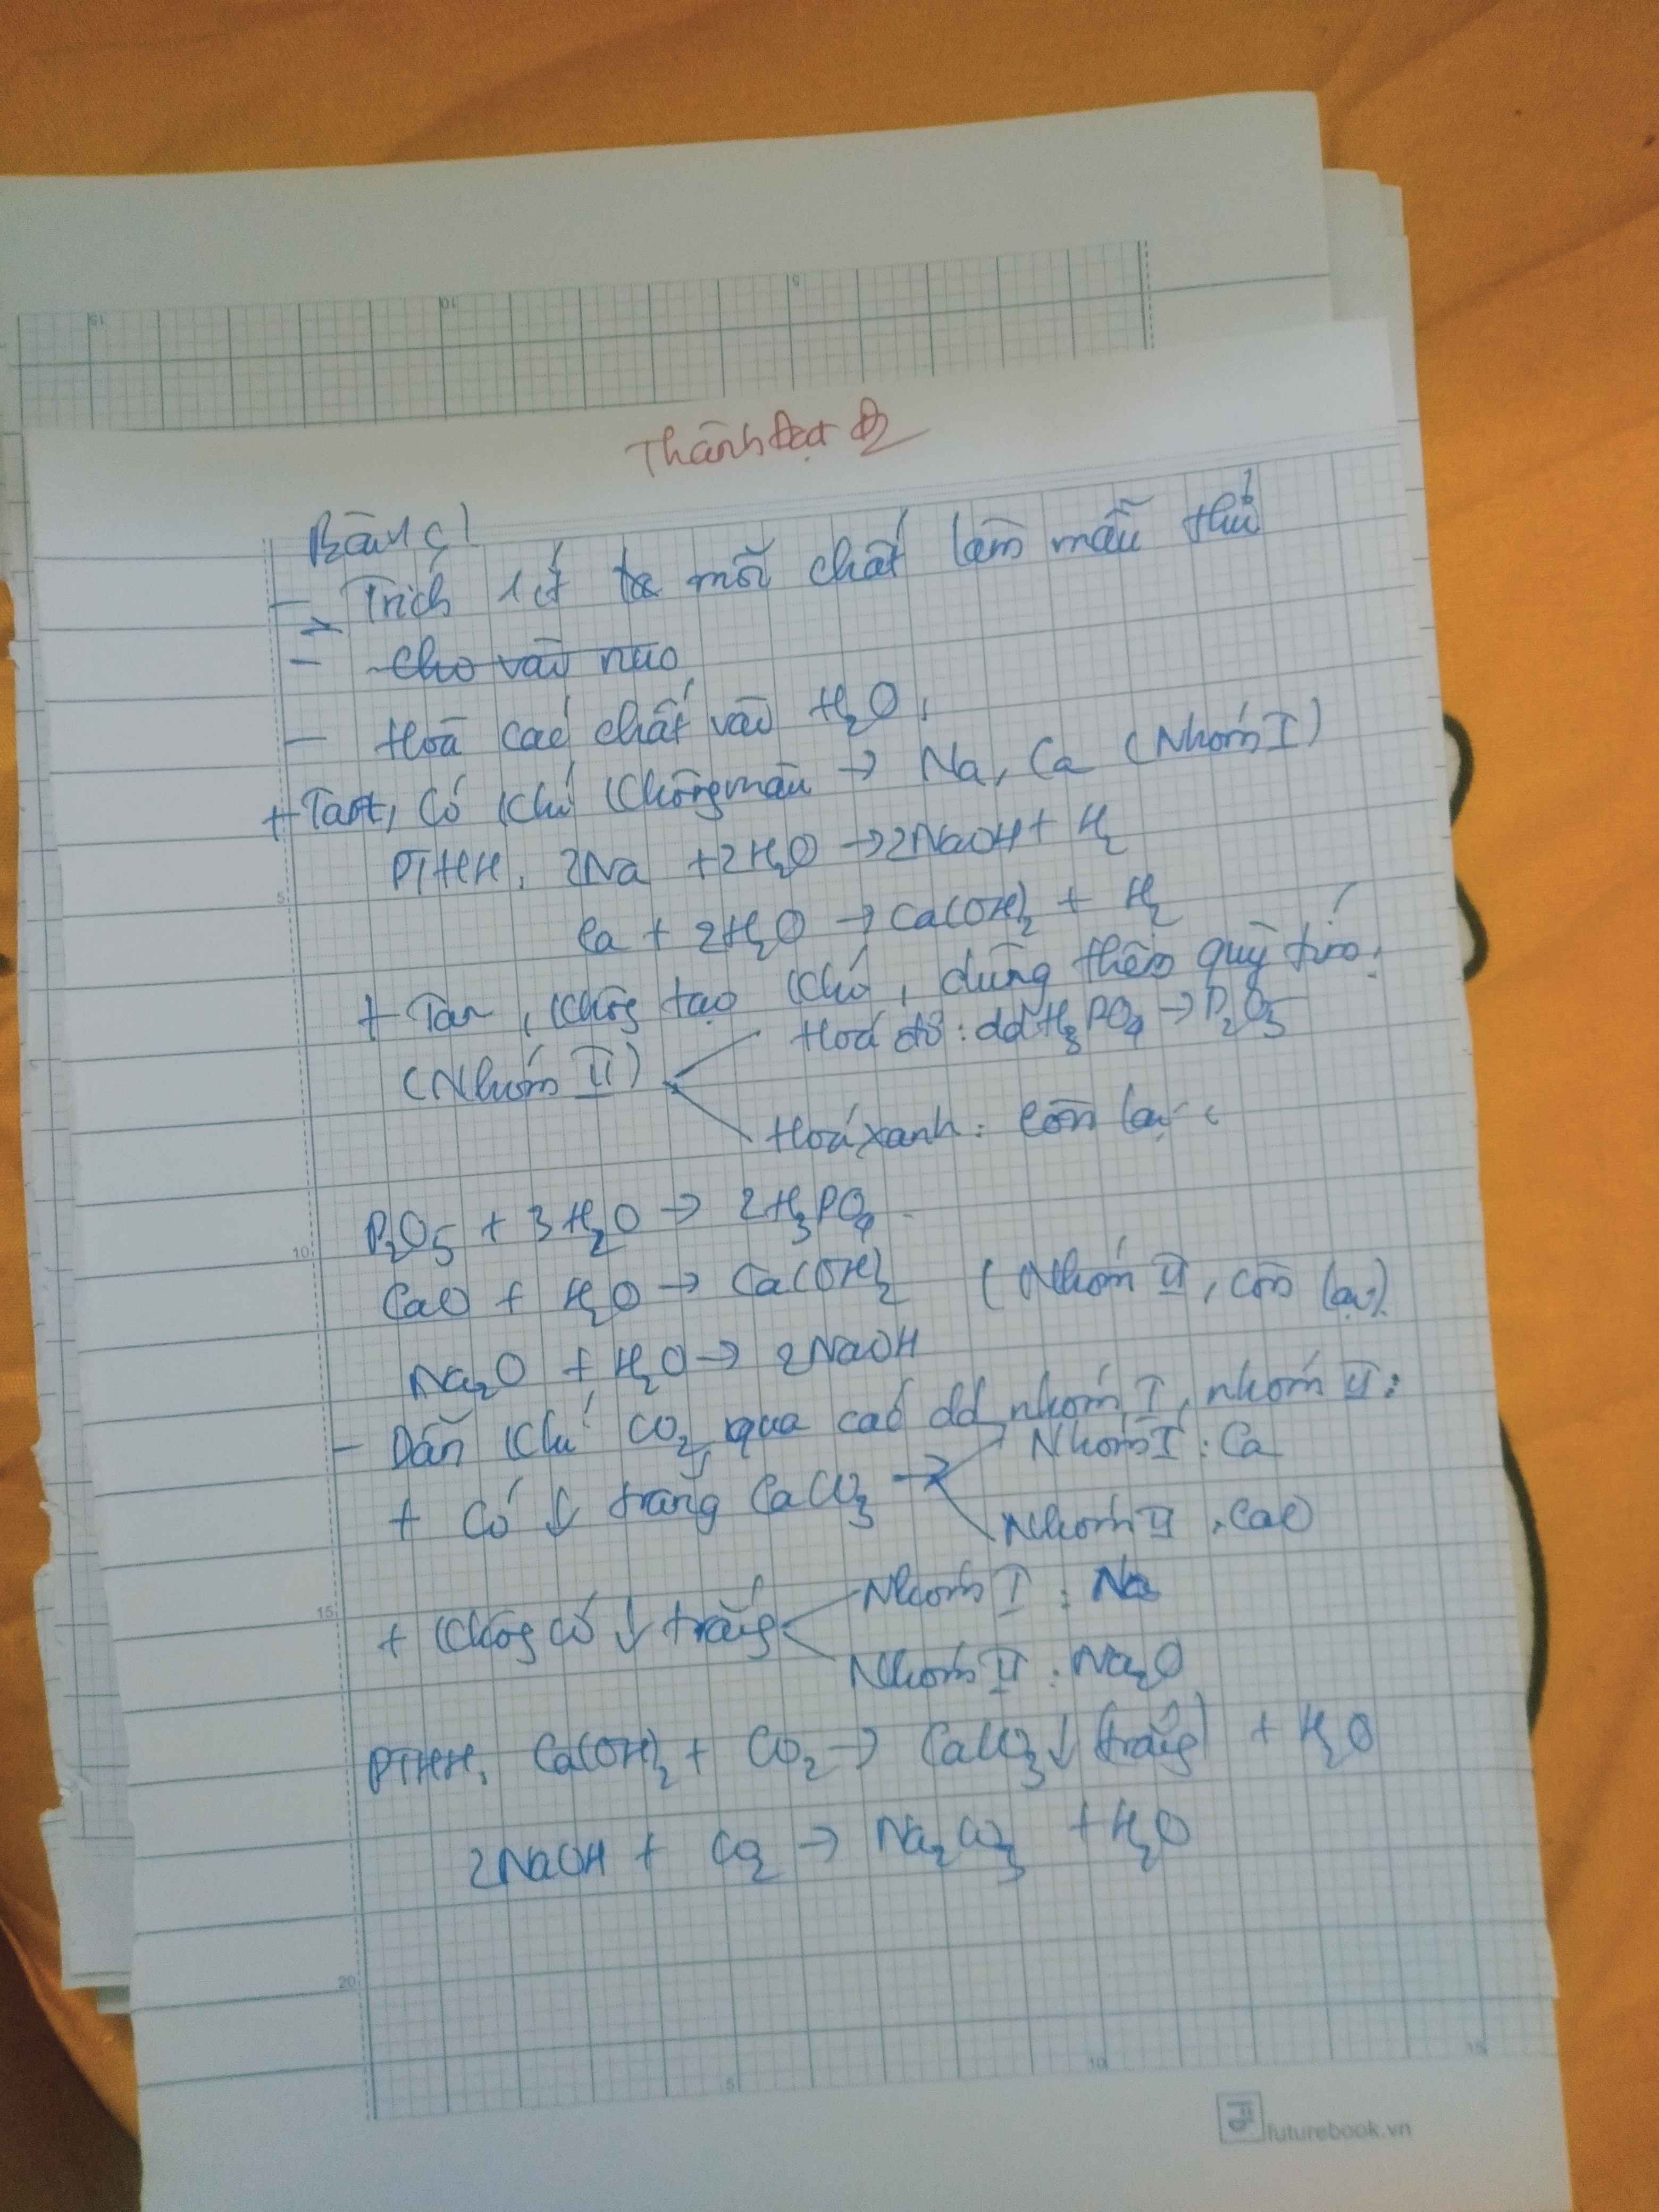 Thành Đạt
- Trích 1 ít mỗi chất làm mẫu thử
- cho vào nào
- Hoà các chất vào H₂O,
+ Tan, có khí không màu → Na, Ca (Nhóm I)
PTHH, 2Na + 2H₂O → 2NaOH + H₂
Ca + 2H₂O → Ca(OH)₂ + H₂
+ Tan, không tạo khí, dùng thêm quỳ tím,
(Nhóm II)
Hoá đỏ: dd H₃PO₄ → P₂O₅
Hoá xanh: còn lại
P₂O₅ + 3H₂O → 2H₃PO₄
CaO + H₂O → Ca(OH)₂ (Nhóm II, còn lại)
Na₂O + H₂O → 2NaOH
- Dẫn khí CO₂ qua các dd nhóm I, nhóm II:
+ Có ↓ trắng CaCO₃ →
Nhóm I: Ca
Nhóm II, CaO
+ Không có ↓ trắng
Nhóm I: Na
Nhóm II: Na₂O
PTHH, Ca(OH)₂ + CO₂ → CaCO₃ ↓ (trắng) + H₂O
2NaOH + CO₂ → Na₂CO₃ + H₂O
5
10
15
20
5
10
15
futurebook.vn